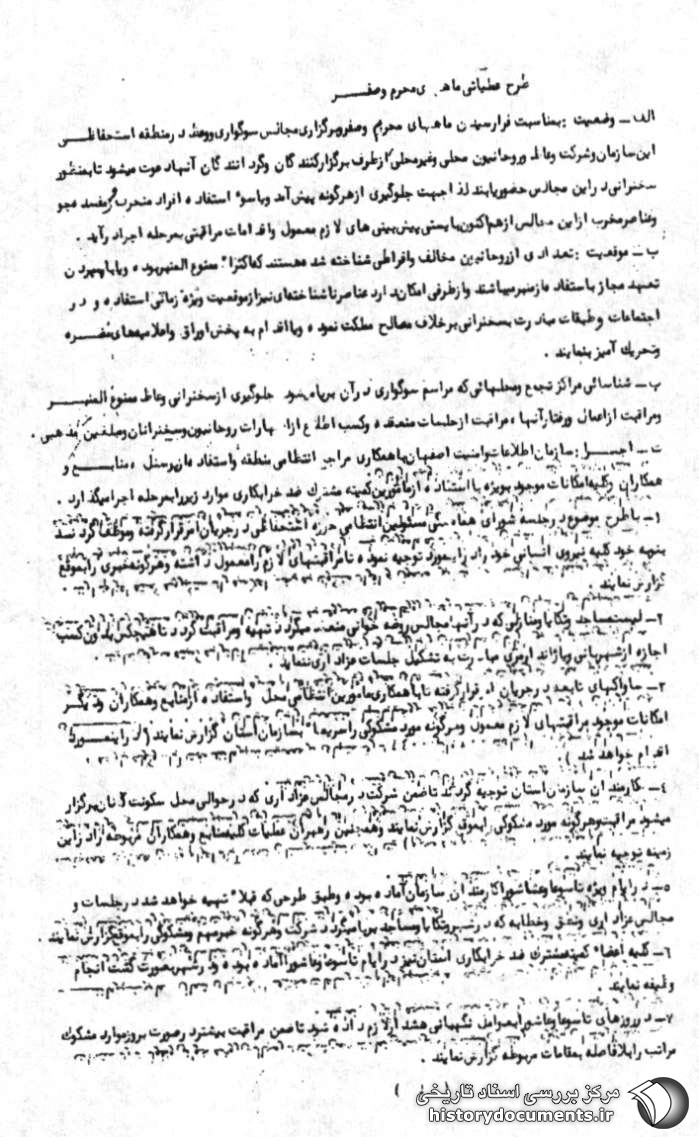 طرح عملیاتی ماه های محرم وصفر
الف ــ وضعیت : بمناسبت فرارسیدن ماههای محرم وصفروبرگزاری مجالس سوگواری ووعظ درمنطقه استحفاظی
این سازمان وشرکت وعاظ وروحانیون محلی وغیرمحلی ازطرف برگزارکنند گان وگرد انند گان آنهاد عوت میشود تابمنظور
سخنرانی د راین مجالس حضوریابند لذ اجهت جلوگیری ازهرگونه پیش آمد وباسوء استفاد ه افراد منحرف ومفسد ه جو
وعناصرمخرب ازاین مجالس ازهم اکنون بایستی پیش بینی های لا زم معمول واقد امات مراقبتی بمرحله اجراد رآید .
ب ــ موقعیت : تعد اد ی ازروحانیون مخالف وافراطی شناخته شد ه هستند که اکثرا" ممنوع المنبربود ه ویاباسپرد ن
تعهد مجازباستفاد ه ازمنبرمیباشند وازطرفی امکان د ارد عناصرناشناخته ای نیزازموقعیت ویژه زمانی استفاد ه و د ر
اجتماعات وطبقات مباد رت بسخنرانی برخلاف مصالح مملکت نمود ه ویااقد ام به پخش اوراق واعلامیه های مضره
وتحریک آمیز بنمایند .
پ ــ شناسائی مراکز تجمع ومحلهائی که مراسم سوگواری د رآن برپامیشود جلوگیری ازسخنرانی وعاظ ممنوع المنبر
ومراقبت ازاعمال ورفتارآنها ، مراقبت ازجلسات منعقد ه وکسب اطلا ع ازاظهارات روحانیون وسخنرانان ومبلغین مذ هبی .
ت ــ اجرا : سازمان اطلاعات وامنیت اصفهان باهمکاری مراجع انتظامی منطقه واستفاد ه ازپرسنل ، منابع و
همکاران وکلیه امکانات موجود بویژه بااستفاد ه ازمامورین کمیته مشترک ضد خرابکاری موارد زیررابمرحله اجرامیگذ ارد .
۱ــ باطرح موضوع د رجلسه شورای هماهنگی مسئولین انتظامی حوزه استحفاظی د رجریان امرقرارگرفته وموظف گرد ند
بنوبه خود کلیه نیروی انسانی خود راد راینمورد توجیه نمود ه تامراقبتهای لا زم رامعمول د اشته وهرگونه خبری رابموقع
گزارش نمایند .
۲ــ لیست مساجد وتکایا ومنازلی که د رآنها مجالس روضه خوانی منعقد میگرد د تهیه ومراقبت گرد د تاهیچکس بد ون کسب
اجازه ازشهربانی ویاژاند ارمری مباد رت به تشکیل جلسات عزاد اری ننماید .
۳ــ ساواکهای تابعه د رجریان امرقرارگرفته تاباهمکاری مامورین انتظامی محل واستفاد ه ازمنابع وهمکاران ود یگر
امکانات موجود مراقبتهای لا زم معمول وهرگونه مورد مشکوکی راسریعا" بسازمان استان گزارش نمایند ( د راینمورد
اقد ام خواهد شد ) .
٤ــ کارمند ان سازمان استان توجیه گرد ند تاضمن شرکت د رمجالس عزاد اری که د رحوالی محل سکونت آنان برگزار
میشود مراقبت وهرگونه مورد مشکوکی رابموقع گزارش نمایند وهمچنین رهبران عملیات کلیه منابع وهمکاران مربوطه راد راین
زمینه توجیه نمایند .
٥ــ د رایام ویژه تاسوعاوعاشوراکارمند ان سازمان آماد ه بود ه وطبق طرحی که قبلا" تهیه خواهد شد د رجلسات و
مجالس عزاد اری وعظ وخطابه که د رشهروتکایا ومساجد برپامیگرد د شرکت وهرگونه خبرمهم ومشکوکی رابموقع گزارش نمایند .
٦ــ کلیه اعضاء کمیته مشترک ضد خرابکاری استان نیزد رایام تاسوعاوعاشوراآماد ه بود ه ود رشهربصورت گشت انجام
وظیفه نمایند .
۷ــ د رروزهای تاسوعاوعاشورابعوامل نگهبانی هشد ارلازم د اد ه شود تاضمن مراقبت بیشترد رصورت بروزموارد مشکوک
مراتب رابلافاصله بمقامات مربوطه گزارش نمایند .
مرکز بررسی اسناد تاریخی
historydocuments.ir